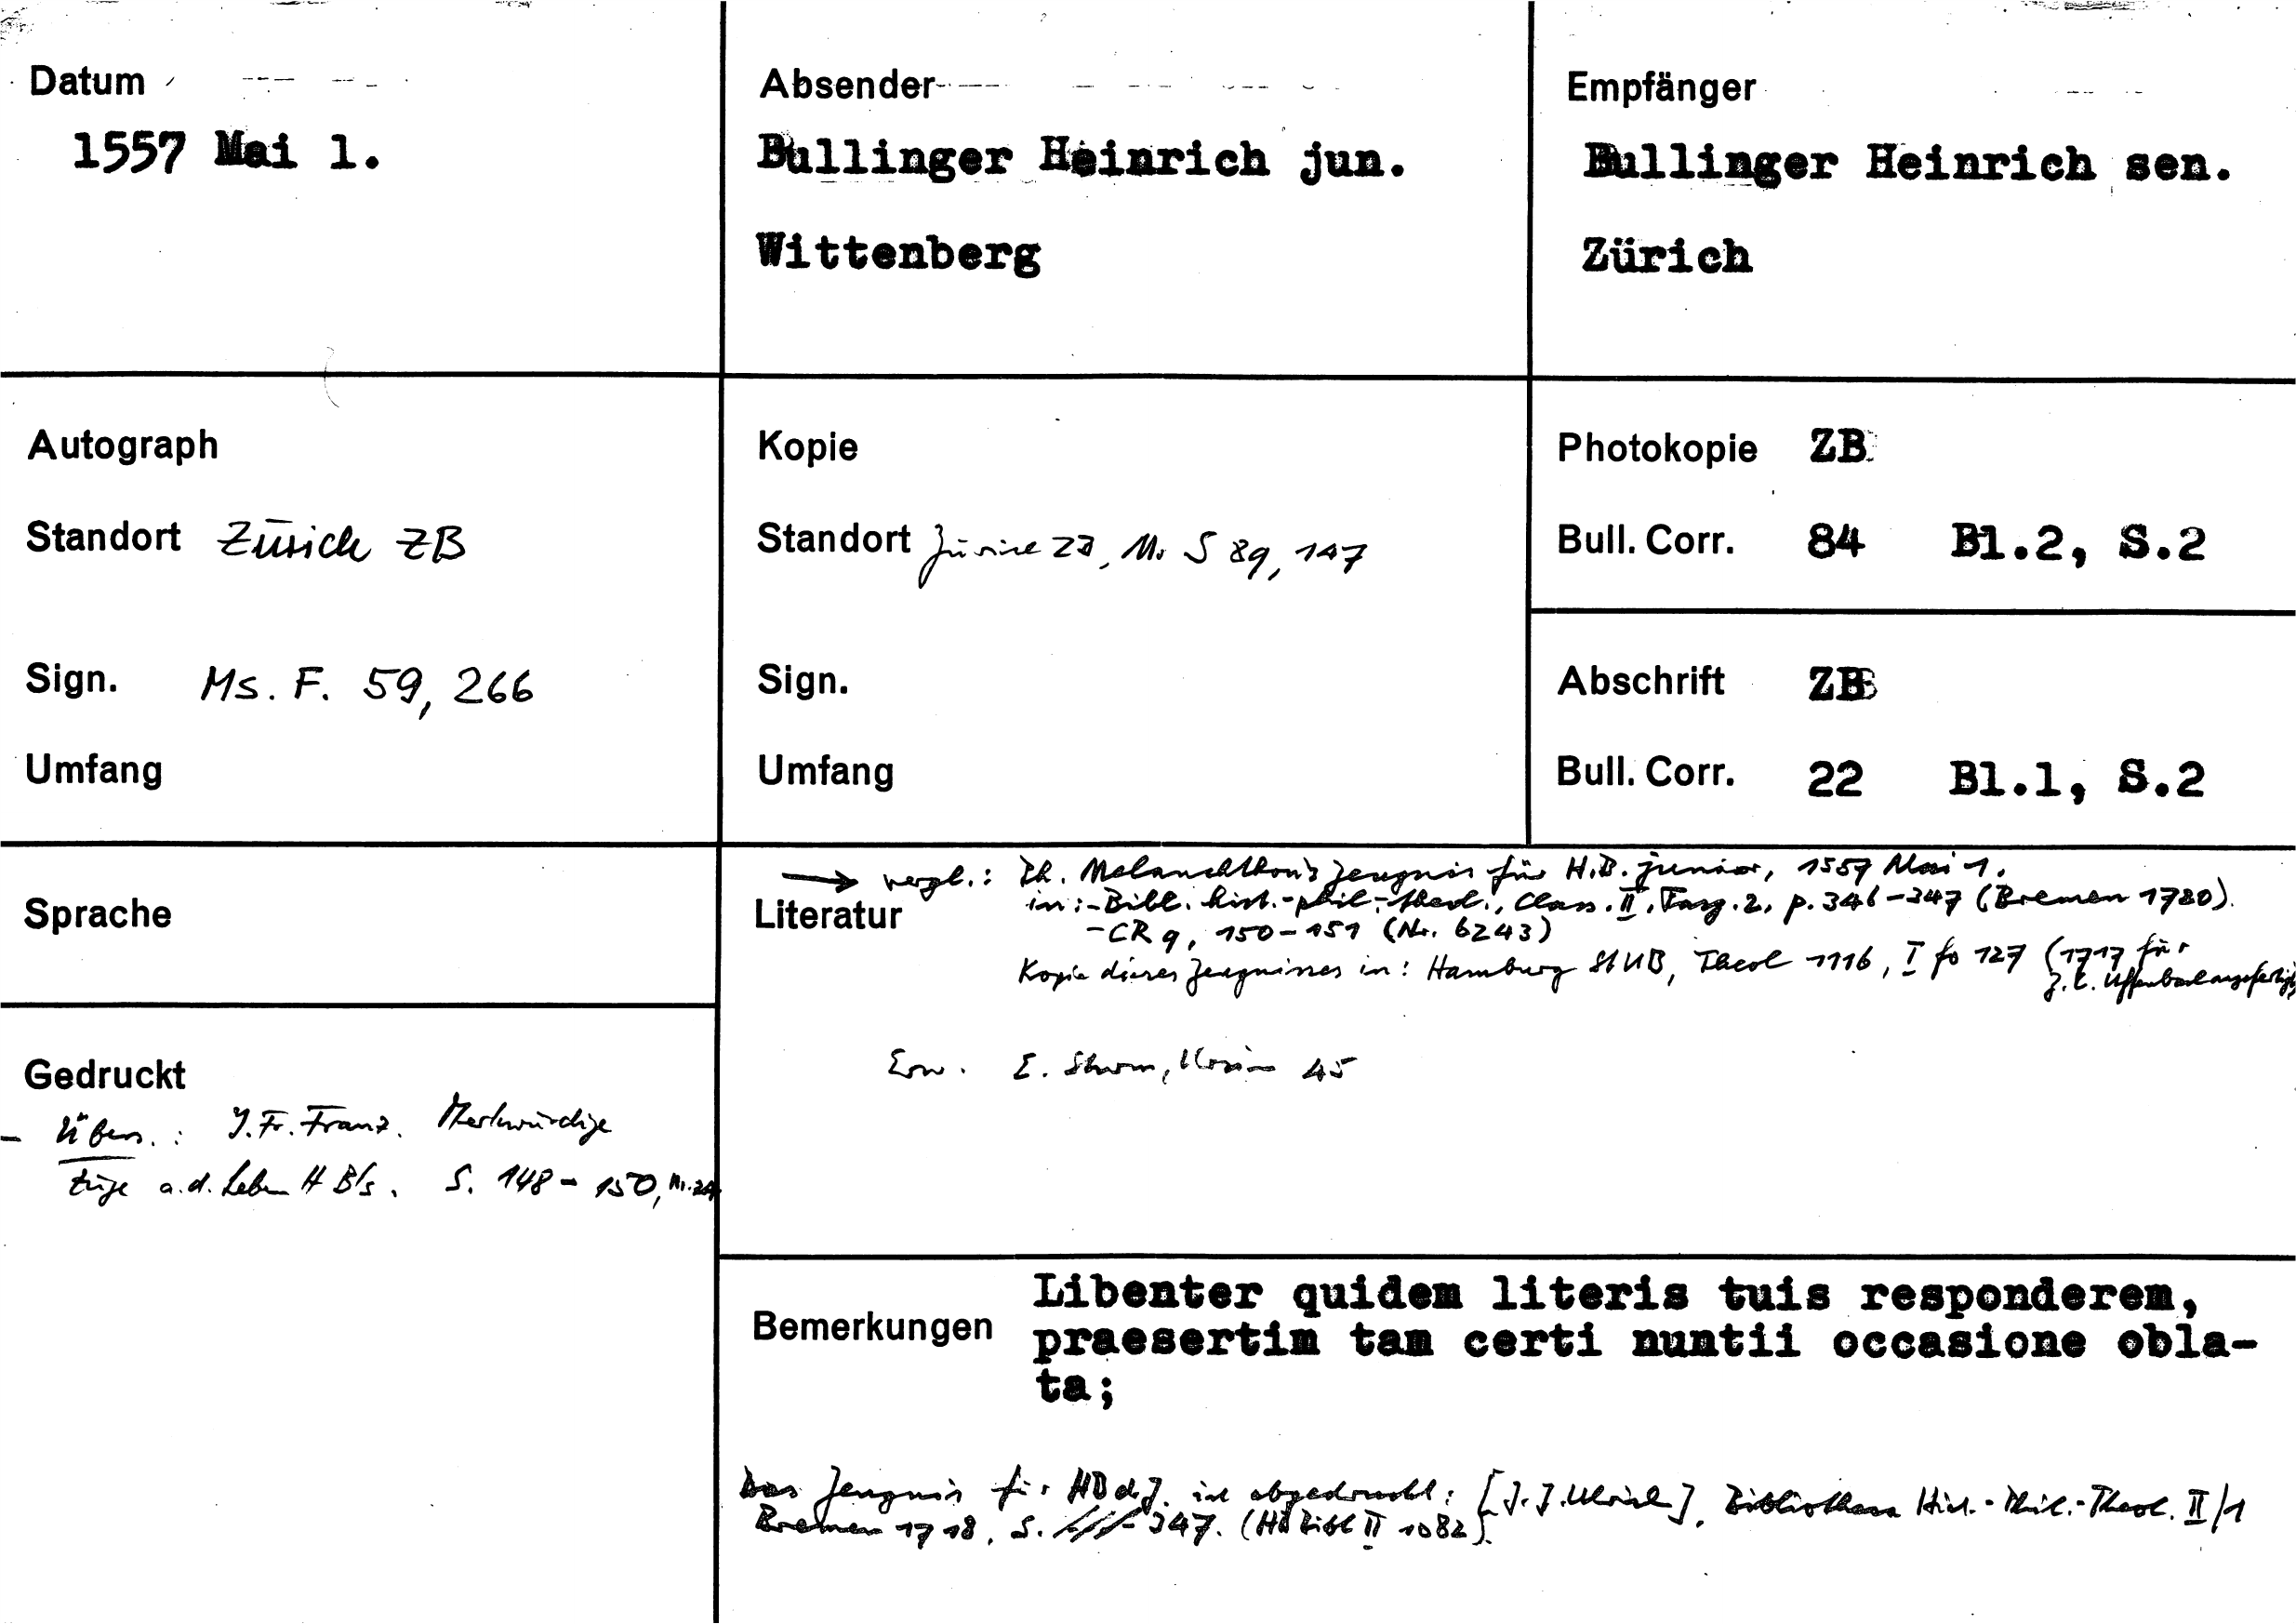 Datum
1557 Mai 1.
Absender
Bullinger Heinrich jun.
Wittenberg
Empfänger
Bullinger Heinrich sen.
Zürich
Autograph
Standort Zürich ZB
Sign. Ms. F. 59, 266
Umfang
Kopie
Standort Zürich ZB, Ms S 89, 147
Sign.
Umfang
Photokopie ZB
Bull. Corr. 84 Bl.2, S.2
Abschrift ZB
Bull. Corr. 22 Bl.1, S.2
Sprache
Gedruckt
- Übers.: J. Fr. Franz. Merkwürdige
Züge a.d. Leben H B's. S. 148-150, Nr.
Literatur
→ vergl.: Ph. Melanchthon's Zeugnis für H.B. junior, 1557 Mai 1.
in: - Bibl. hist.-phil.-theol., Class. II, Fasg. 2, p. 346-347 (Bremen 1720).
- CR 9, 150-151 (Nr. 6243)
Kopie dieses Zeugnisses in: Hamburg StUB, Theol 1116, I fo 127 (1717 für
Z. C. Uffenbach angefertigt)
Erw. E. Sturm, 45
Bemerkungen
Libenter quidem literis tuis responderem,
praesertim tam certi nuntii occasione obla-
ta;
Das Zeugnis für HB d.J. ist abgedruckt: [J. J. Ulrich], Bibliotheca Hist.-Phil.-Theol. II/1
Bremen 1718, S. 347. (HBBibl II 1082).